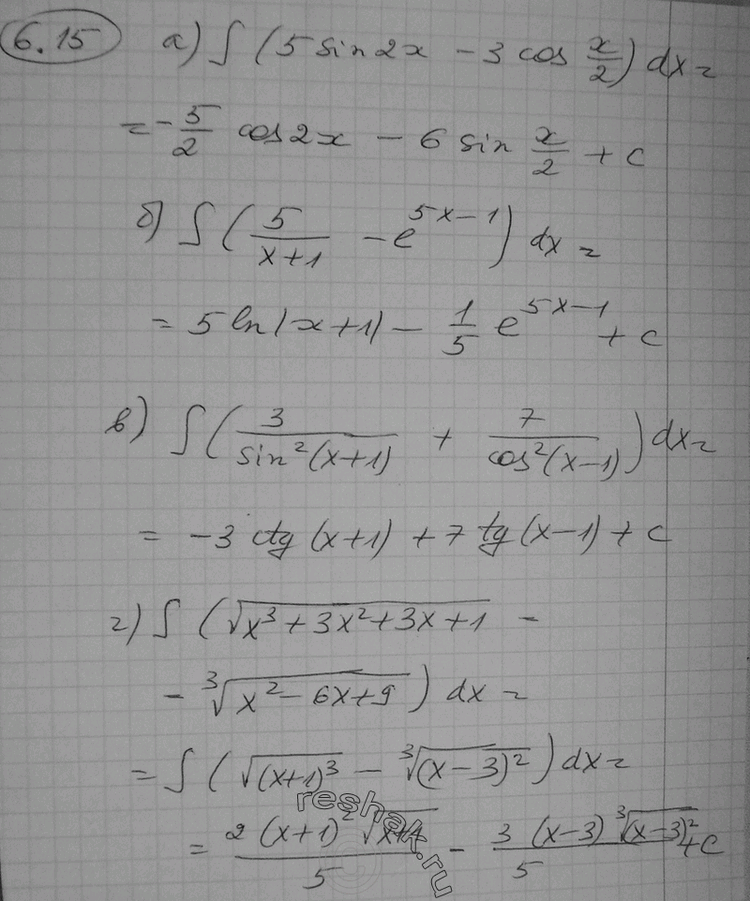 6.15 а) ∫ (5 sin 2x - 3 cos x/2) dx =
= -5/2 cos 2x - 6 sin x/2 + c
б) ∫ (5/(x+1) - e^(5x-1)) dx =
= 5 ln|x+1| - 1/5 e^(5x-1) + c
в) ∫ (3/(sin²(x+1)) + 7/(cos²(x-1))) dx =
= -3 ctg(x+1) + 7 tg(x-1) + c
г) ∫ (√(x³+3x²+3x+1) -
- ³√(x²-6x+9)) dx =
= ∫ (√((x+1)³) - ³√((x-3)²)) dx =
= (2(x+1)²√(x+1))/5 - (3(x-3) ³√((x-3)²))/5 + c
reshak.ru